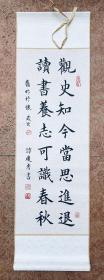 觀史知今當思進退
讀書養志可識春秋